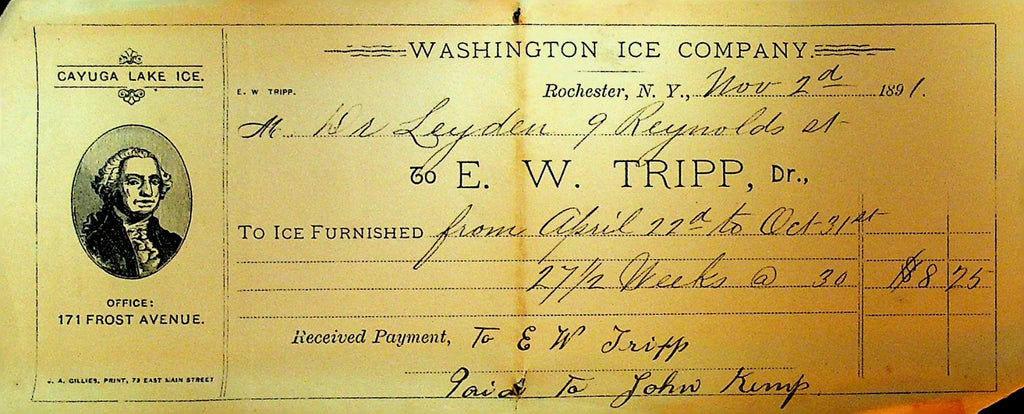 CAYUGA LAKE ICE.
OFFICE:
171 FROST AVENUE.
J. A. GILLIES, PRINT, 73 EAST MAIN STREET
WASHINGTON ICE COMPANY.
E. W TRIPP.
Rochester, N. Y., Nov 2d 1891.
M Dr Leyden 9 Reynolds st
To E. W. TRIPP, Dr.,
TO ICE FURNISHED from April 22d to Oct 31st
27 1/2 Weeks @ 30 $8 25
Received Payment, To E W Tripp
Paid to John Kemp